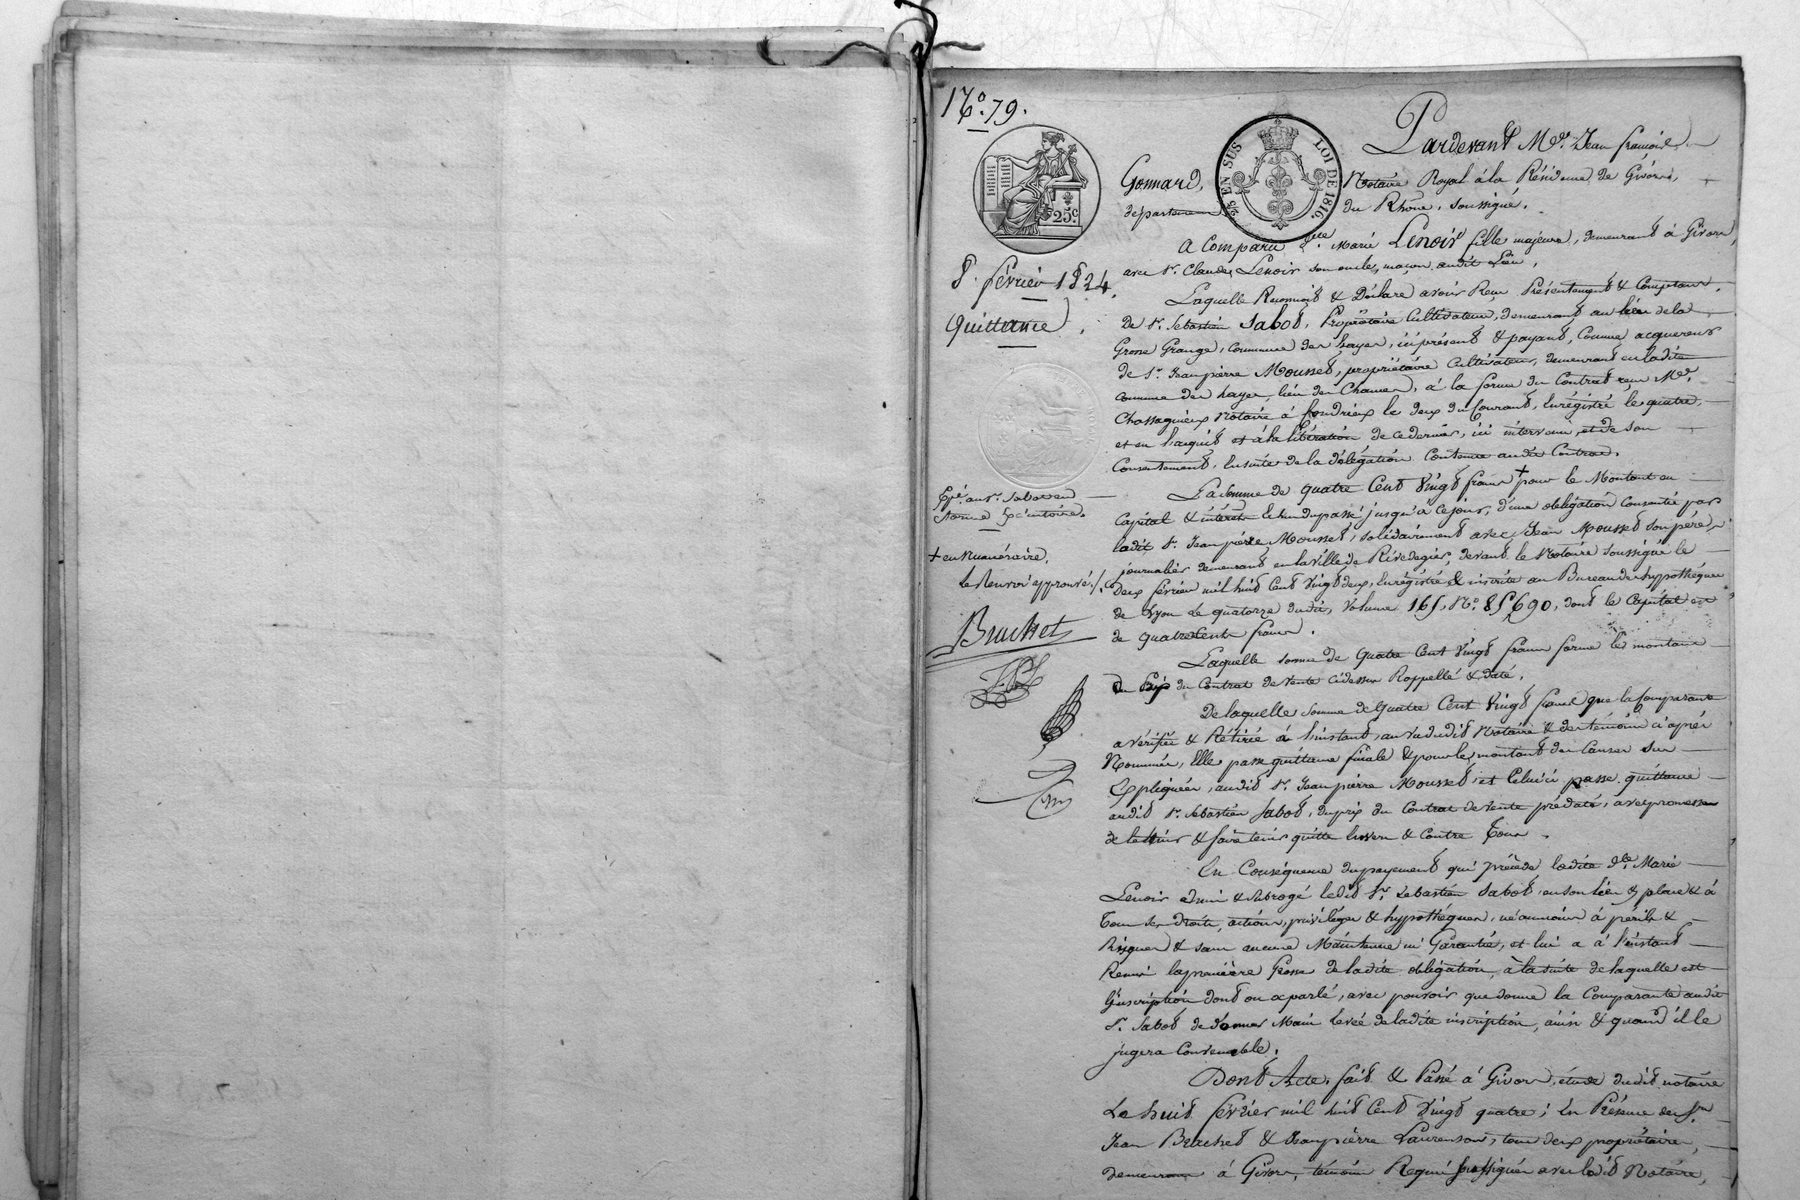 N.o 79.
8. février 1824.
Quittance.
Epé. au Sr. Sabot en
forme Exécutoire.
+ en Numéraire,
le Renvoi approuvé ./.
Brachet
2/5 EN SUS LOI DE 1816.
25c.
Pardevant Me. Jean françois
Gonnard, Notaire Royal à la Résidence de Givors,
département du Rhône, soussigné.
A Comparu Dlle. Marie Lenoir fille majeure, demeurant à Givors,
avec Sr. Claude Lenoir son oncle, maçon audit Lieu,
Laquelle Reconnoit & Déclare avoir Reçu Présentement & Comptant,
de Sr. Sebastien Sabot, Propriétaire Cultivateur, demeurant au lieu de la
Grosse Grange, commune des hayes, ici présent & payant, comme acquereur
de Sr. Jeanpierre Mousset, propriétaire Cultivateur, demeurant en ladite
commune des hayes, lieu des Chanes, à la forme du Contrat reçu Me.
Chassagnieux Notaire à Condrieux le deux du Courant, Enrégistré le quatre,
et en l'acquit et à la libération de ce dernier, ici intervenu, et de son
Consentement, Ensuite de la délégation Contenue audit Contrat.
La somme de quatre Cent Vingt francs + pour le Montant en
Capital & intérêts Echus du passé jusqu'à ce jour, d'une obligation Consentie par
ledit Sr. Jean pierre Mousset, solidairement avec Jean Mousset son père,
journalier demeurant en la Ville de Rivedegier, devant le Notaire soussigné le
Deux février mil huit Cent Vingt deux, Enrégistrée & inscrite au Bureau des hypothéques
de Lyon Le quatorze dudit, Volume 165, No. 85,690, dont le Capital est
de quatre cents francs.
Laquelle somme de Quatre Cent Vingt francs forme le montant
du Prix du Contrat de vente cidessus Rappellé & daté.
De laquelle somme de Quatre Cent Vingt francs que la Comparante
a vérifiée & Rétirée à l'instant, au vu dudit Notaire & des témoins ci après
Nommés, Elle passe quittance finale & pour le montant des Causes sus
Expliquées, audit Sr. Jean pierre Mousset, et Celui ci passe quittance
audit Sr. Sebastien Sabot, du prix du Contrat de vente prédaté, avec promesse
de le tenir & faire tenir quitte Envers & Contre Tous.
En Conséquence du payement qui précède ladite Dlle. Marie
Lenoir a mis & subrogé ledit Sr. Sebastien Sabot, en son lieu & place & à
Tous ses Droits, actions, priviléges & hypothéques, néanmoins à périls &
Risques & sans aucune Maintenue ni Garantie, et lui a à l'instant
Remis la première Grosse de ladite obligation, à la suite de laquelle est
l'inscription dont on a parlé, avec pouvoir que donne la Comparante audit
Sr. Sabot de donner Main levée de ladite inscription, ainsi & quand il le
jugera Convenable.
Dont Acte. fait & Passé à Givors, étude dudit notaire
Le huit février mil huit Cent Vingt quatre; En Présence des Srs.
Jean Brachet & Jeanpierre Laurenson, tous deux propriétaires,
demeurans à Givors, témoins Requis soussignés avec ledit Notaire,